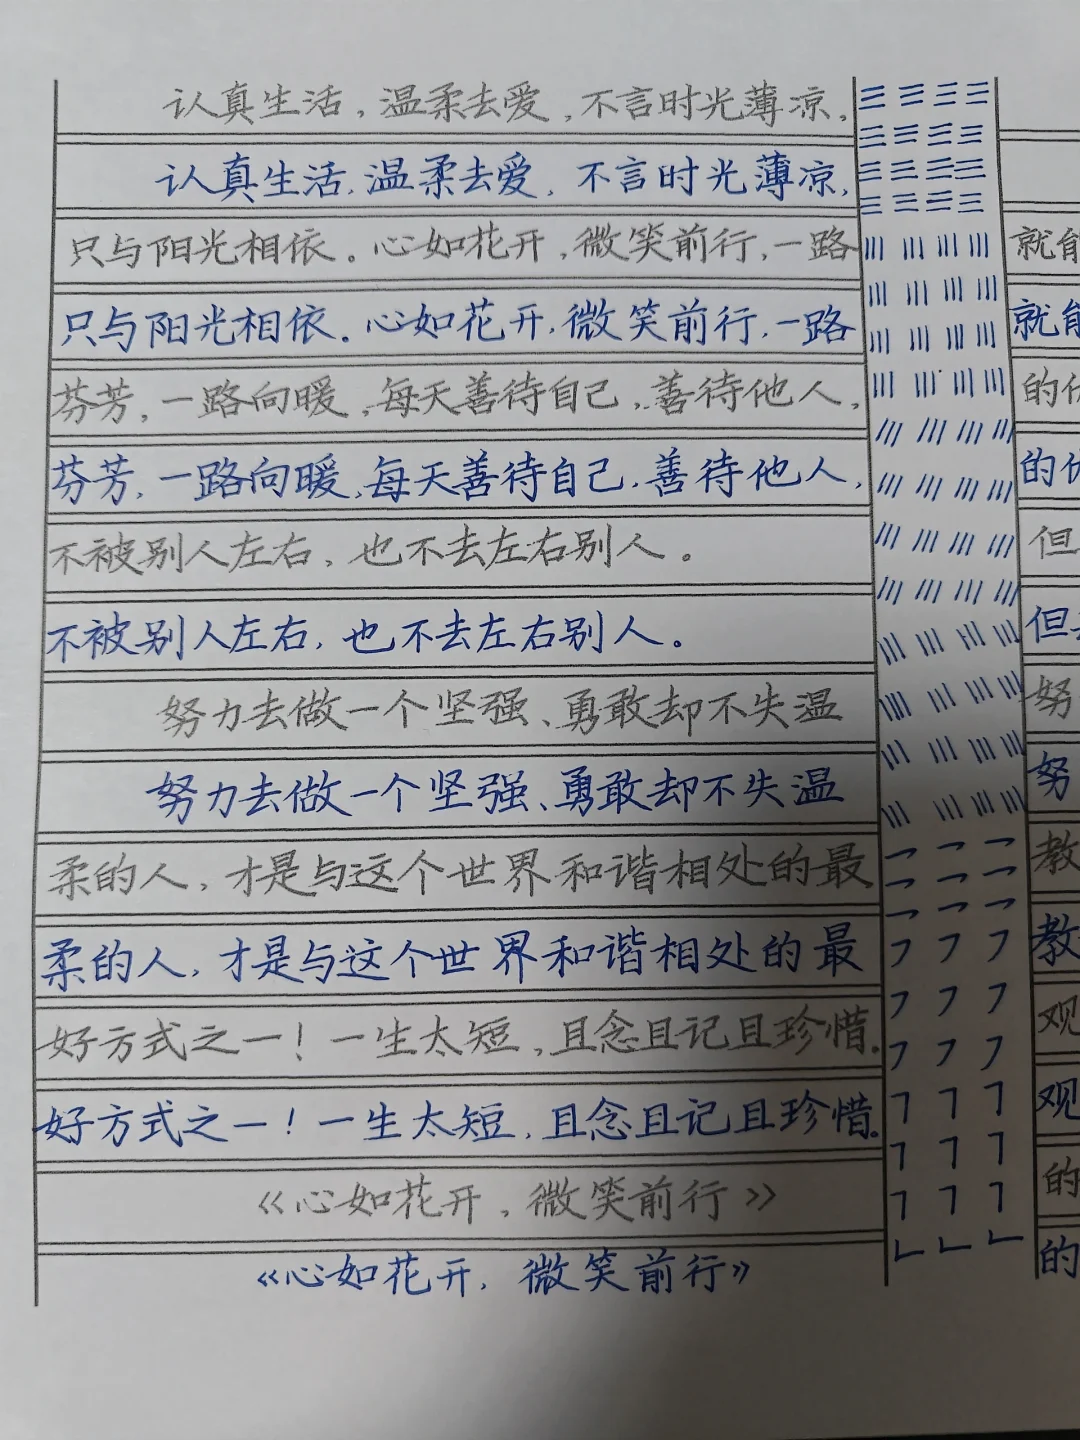 认真生活,温柔去爱,不言时光薄凉,
认真生活,温柔去爱,不言时光薄凉,
只与阳光相依。心如花开,微笑前行,一路
只与阳光相依。心如花开,微笑前行,一路
芬芳,一路向暖,每天善待自己,善待他人,
芬芳,一路向暖,每天善待自己,善待他人,
不被别人左右,也不去左右别人。
不被别人左右,也不去左右别人。
努力去做一个坚强、勇敢却不失温
努力去做一个坚强、勇敢却不失温
柔的人,才是与这个世界和谐相处的最
柔的人,才是与这个世界和谐相处的最
好方式之一!一生太短,且念且记且珍惜。
好方式之一!一生太短,且念且记且珍惜。
《心如花开,微笑前行》
《心如花开,微笑前行》
就能
就能
的
的
但
但
努
努
教
教
观
观
的
的